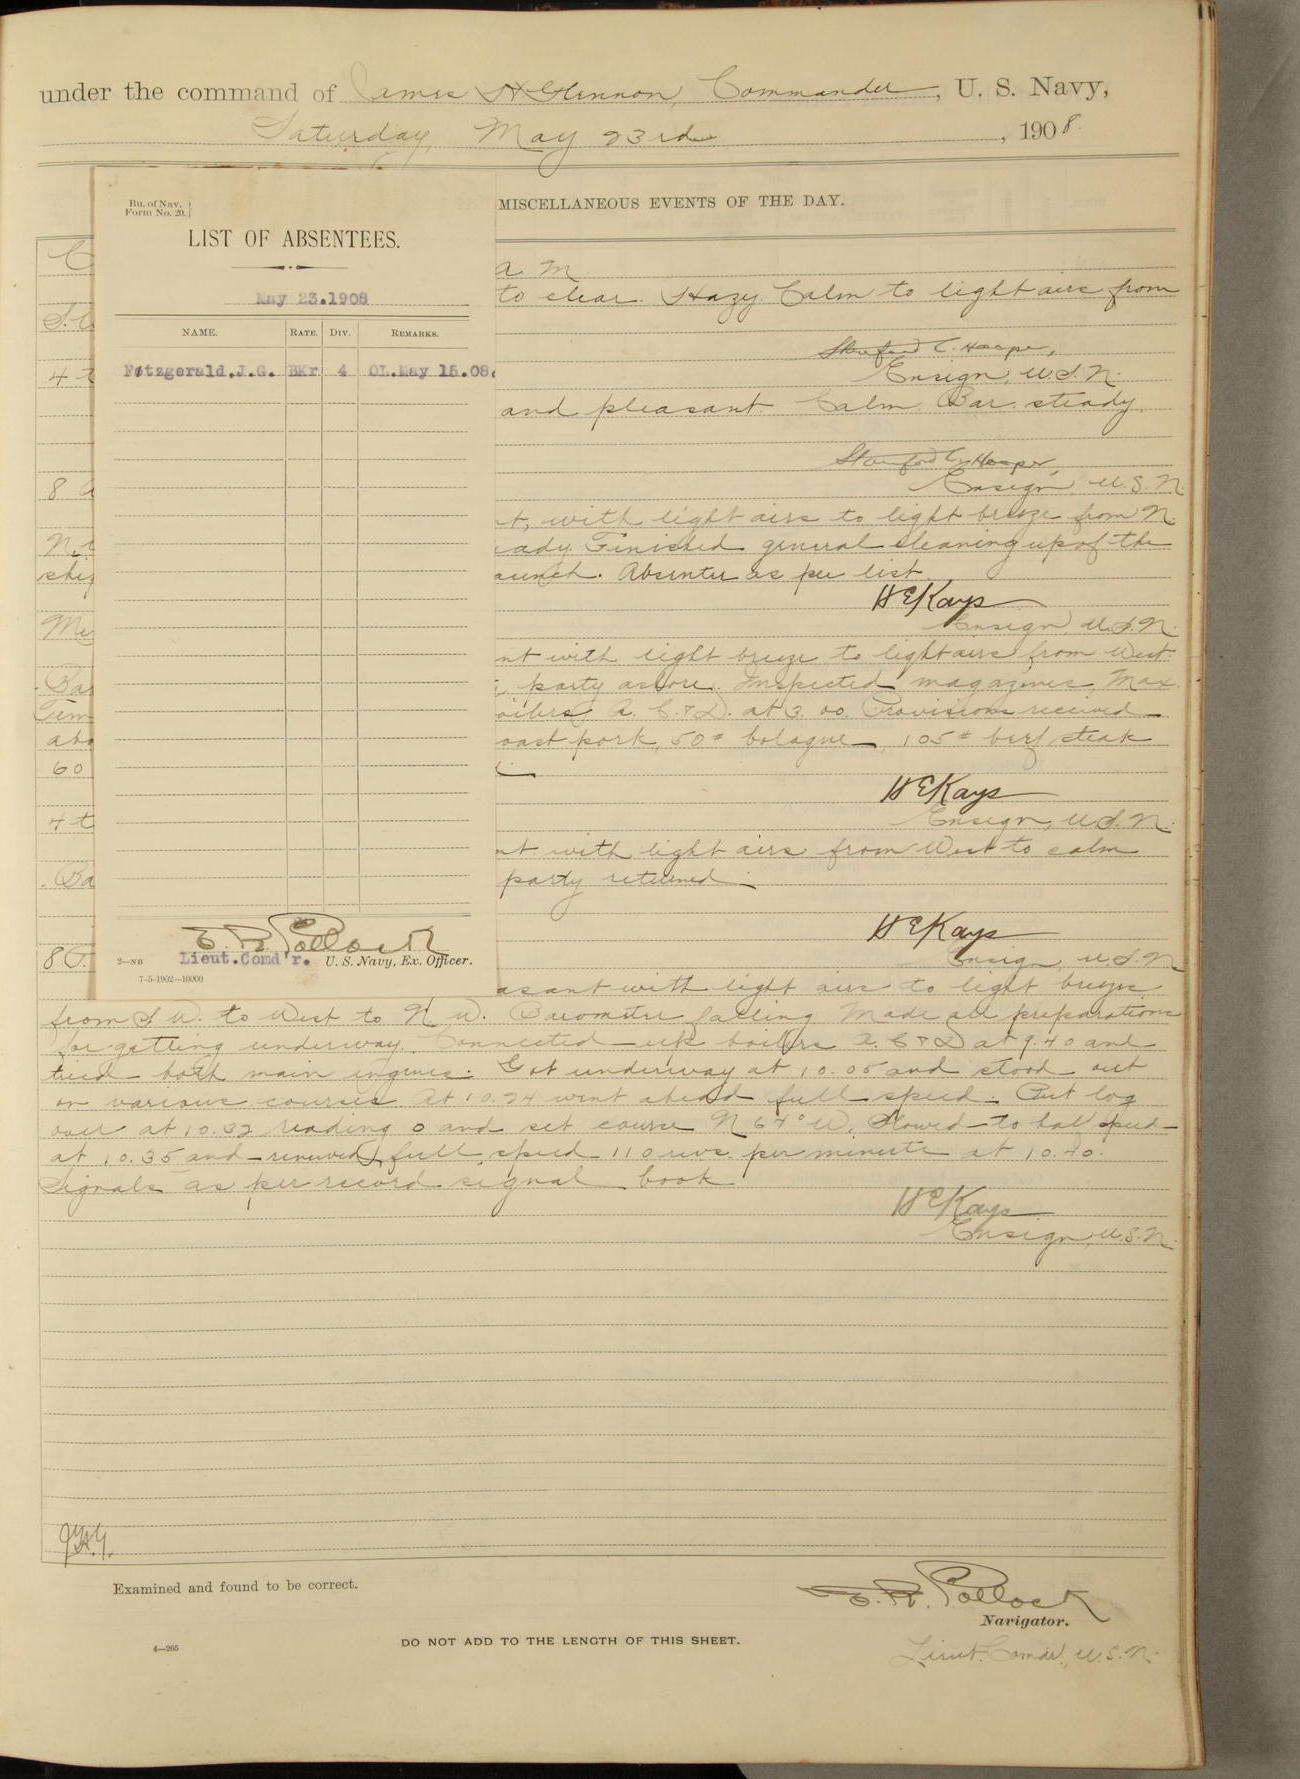 under the command of James H Glennon, Commander, U. S. Navy,
Saturday, May 23rd, 1908.
MISCELLANEOUS EVENTS OF THE DAY.
Bu. of Nav.
Form No. 20.
LIST OF ABSENTEES.
May 23.1908
NAME. RATE. DIV. REMARKS.
Fitzgerald.J.G. BKr 4 OL.May 15.08.
E. R. Pollock
Lieut.Comd'r. U. S. Navy, Ex. Officer.
2—NB
7-5-1902—10000
C
a m
to clear. Hazy. Calm to light airs from
Stanford C. Hooper,
Ensign, U.S.N.
4 t
and pleasant. Calm. Bar. steady.
Stanford C. Hooper,
Ensign, U.S.N.
8 a
t, with light airs to light breeze from N.
eady. Finished general cleaning up of the
ship
aunch. Absentee as per list.
H E Kays
Ensign, U.S.N.
Me
nt with light breeze to light airs from West.
Bar
party ashore. Inspected magazines, Max
Tem
oilers A. C & D. at 3.00. Provisions received
abo
oast pork, 50# bologne, 105# beef steak
60
H E Kays
Ensign, U.S.N.
4 t
nt with light airs from West to calm
Ba
party returned.
H E Kays
Ensign, U.S.N.
8
asant with light airs to light breeze
from S.W. to West to N.W. Barometer falling Made all preparations
for getting underway. Connected up boilers A. C & D at 9.40 and
tried both main engines. Got underway at 10.05 and stood out
on various courses. At 10.24 went ahead full speed. Put log
over at 10.32 reading 0 and set course N 64° W. Slowed to half speed
at 10.35 and renewed full speed 110 revs. per minute at 10.40.
Signals as per record signal book
H E Kays
Ensign, U.S.N.
J.H.G.
Examined and found to be correct.
E. R. Pollock
Navigator.
Lieut. Comdr., U.S.N.
4—265
DO NOT ADD TO THE LENGTH OF THIS SHEET.